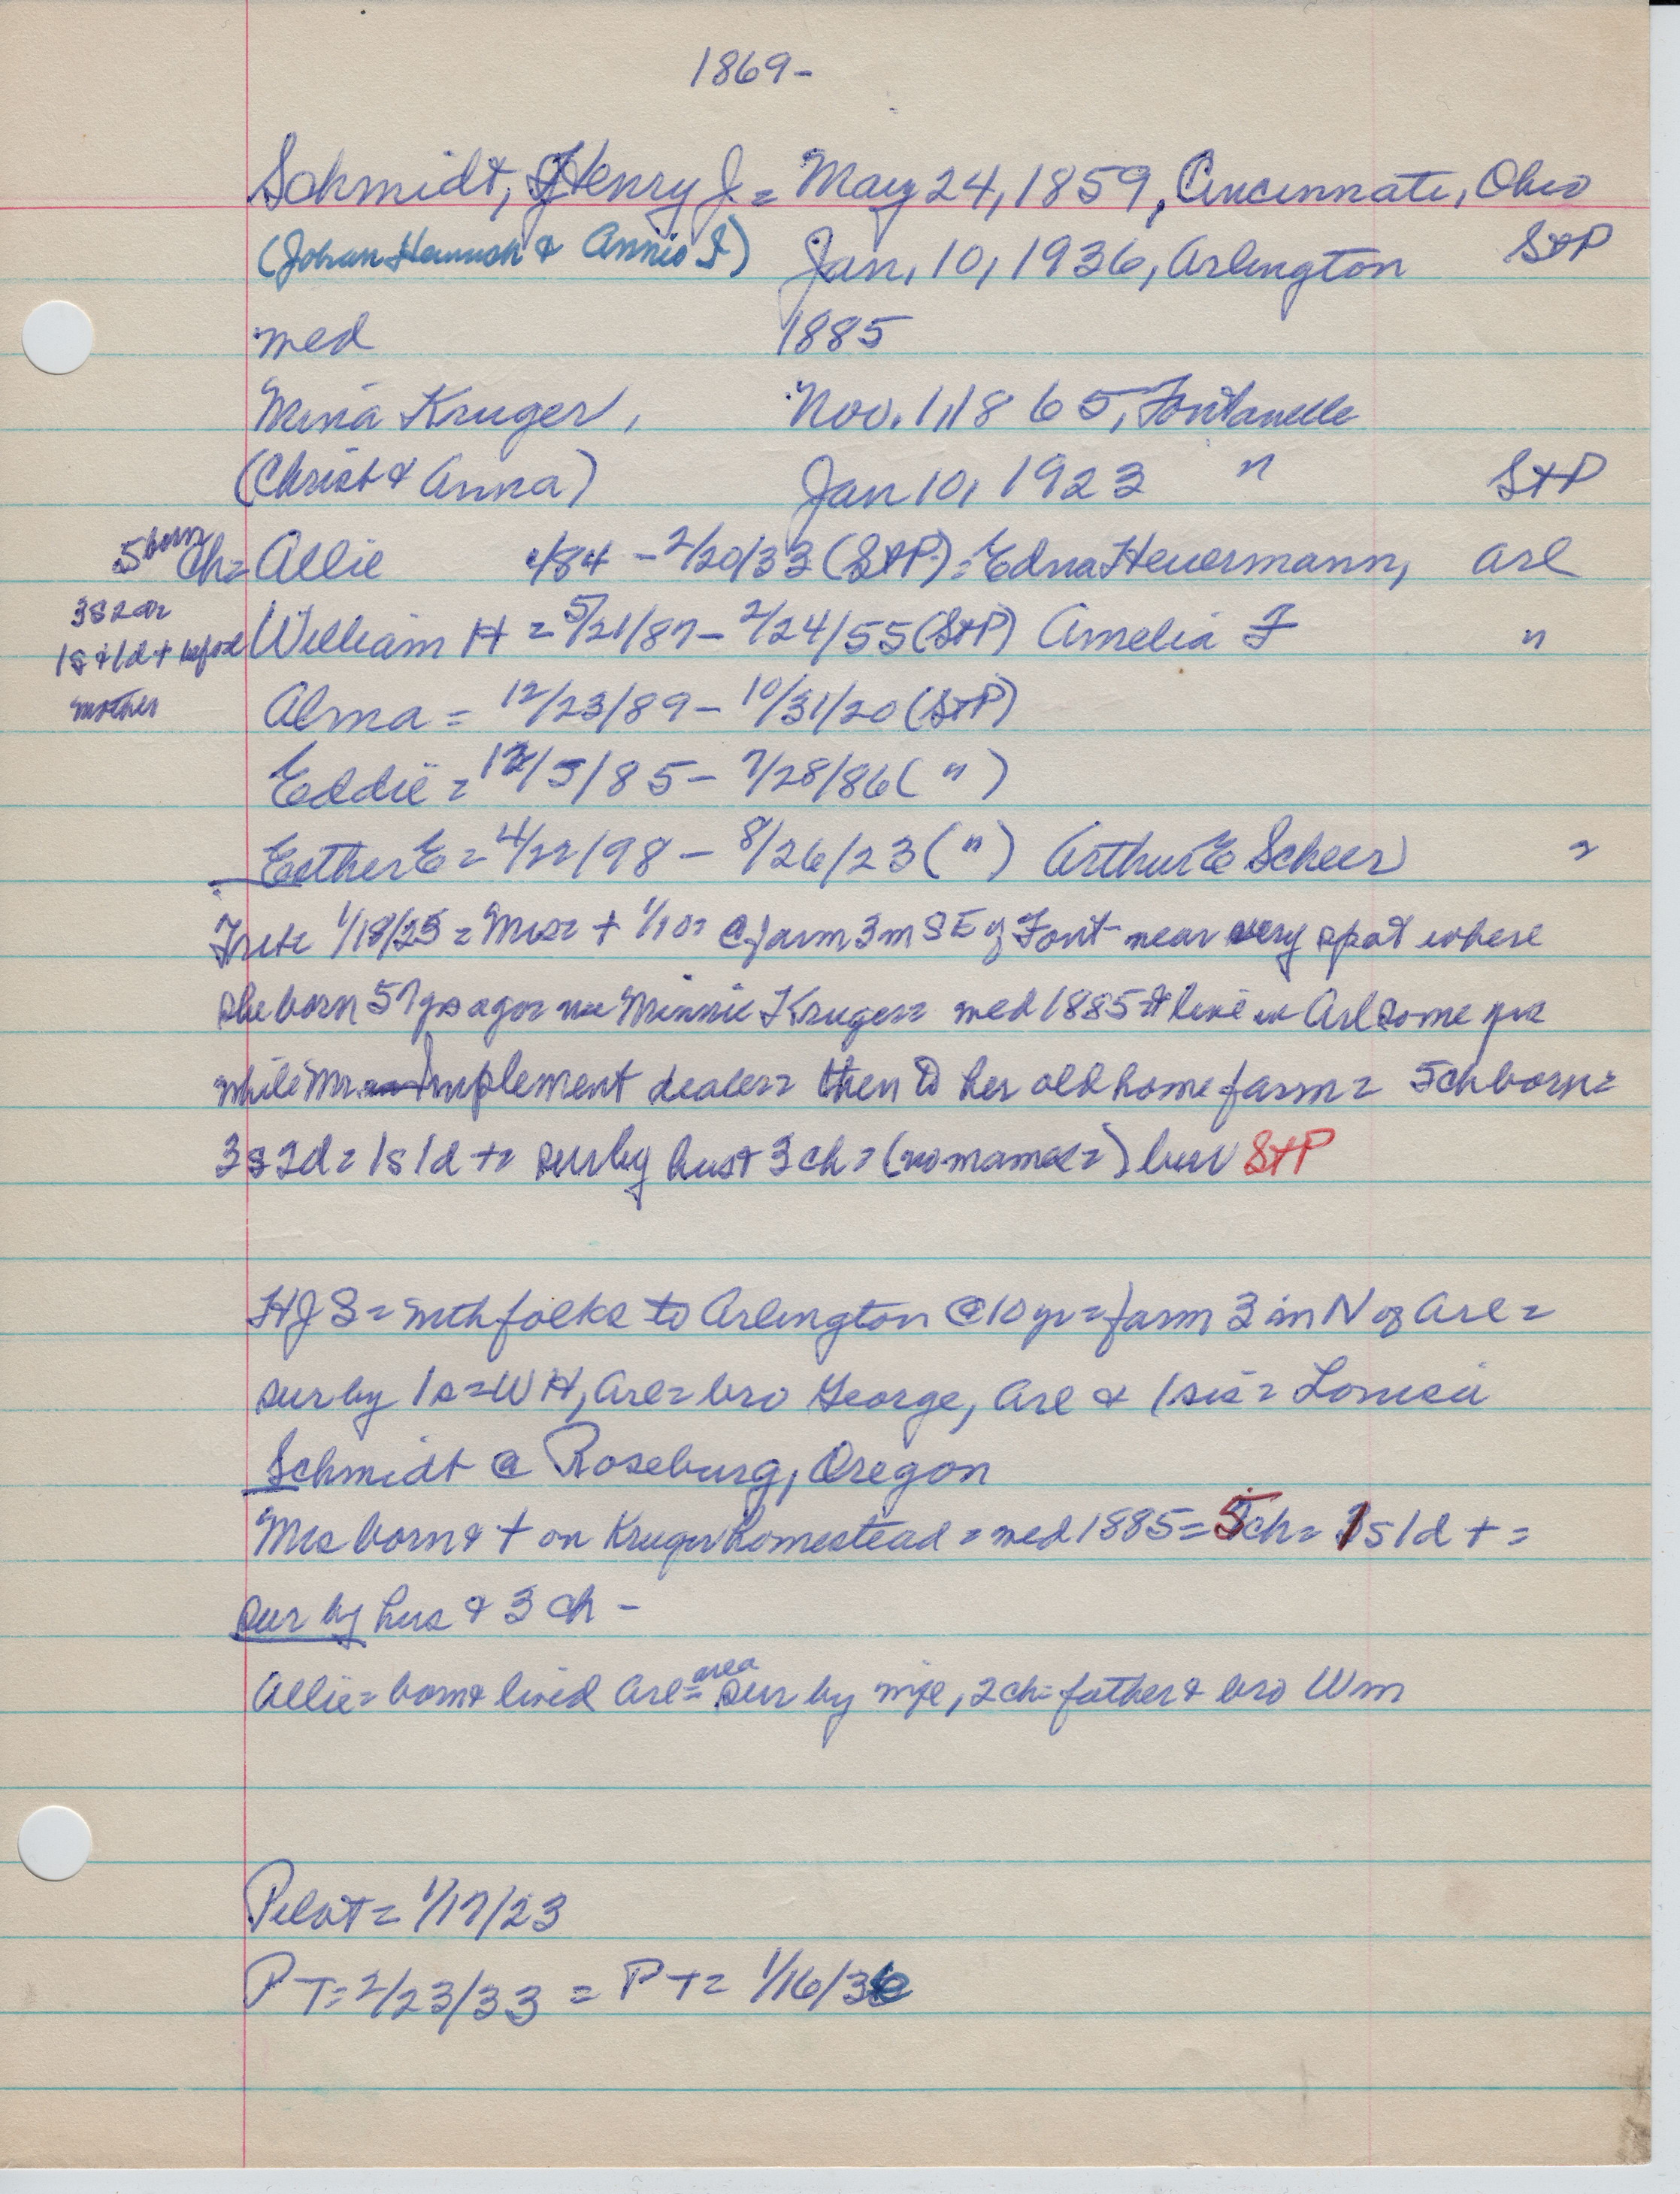 1869-
Schmidt, Henry J = May 24, 1859, Cincinnati, Ohio
(Johan Heinrich & Annie S) Jan, 10, 1936, Arlington St P
med 1885
Mina Kruger, Nov. 1, 1865, Fontanelle
(Christ & Anna) Jan 10, 1923 " St P
5 born Ch = Allie /84 - 2/20/33 (St P) = Edna Heuermann, Arl
3s 2d
William H = 5/21/87 - 2/24/55 (St P) Amelia F "
1s & 1d + before
mother
Alma = 12/23/89 - 10/31/20 (St P)
Eddie = 12/5/85 - 7/28/86 ( " )
Esther E = 4/22/98 - 8/26/23 ( " ) Arthur E Scheer "
1/18/23 = Mrs = + 1/10 = @ farm 3 m SE of Font - near very spot where
she born 57 yrs ago = nee Minnie Kruger = med 1885 & live in Arl some yrs
while Mr implement dealer = then to her old home farm = 5 ch born =
3s 2d = 1s 1d + = sur by hus & 3 ch = (no names =) bur St P
HJS = with folks to Arlington @ 10 yr = farm 3 m N of Arl =
sur by 1s = WH, Arl = bro George, Arl & 1 sis = Louisa
Schmidt @ Roseburg, Oregon
Mrs born & + on Kruger homestead = med 1885 = 5 ch = 1s 1d + =
sur by hus & 3 ch -
Allie = born & lived Arl area = sur by wife, 2 ch = father & bro Wm
Pilot = 1/17/23
PT = 2/23/33 = PT = 1/16/36